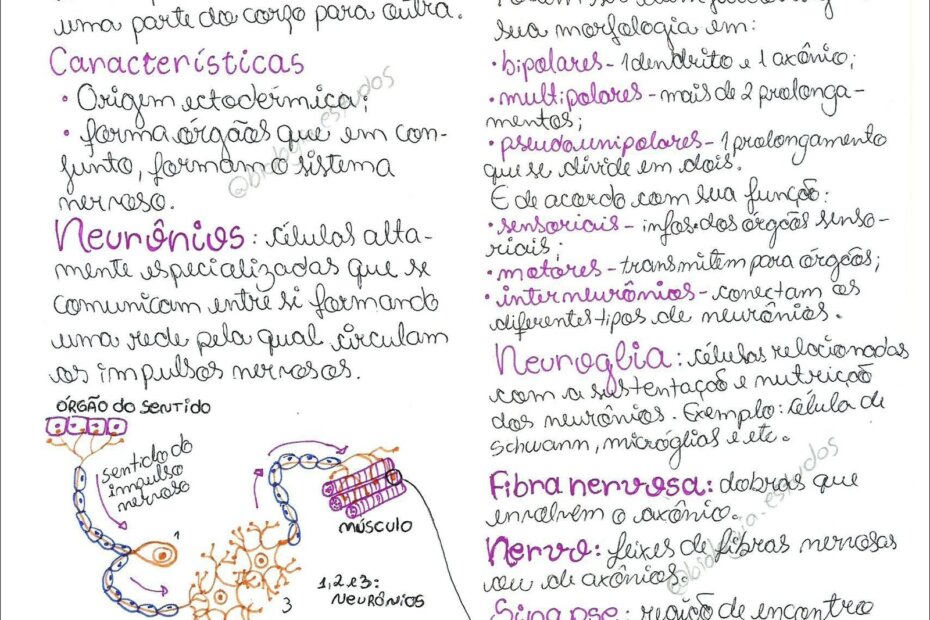 uma parte do corpo para outra.
Características
• Origem ectodérmica;
• forma órgãos que em con-
junto, formam o sistema
nervoso.
Neurônios: células alta-
mente especializadas que se
comunicam entre si formando
uma rede pela qual circulam
os impulsos nervosos.
ÓRGÃO do SENTIDO
sentido do
impulso
nervoso
1
3
1, 2 e 3:
NEURÔNIOS
MÚSCULO
sua morfologia em:
• bipolares - 1 dendrito e 1 axônico;
• multipolares - mais de 2 prolonga-
mentos;
• pseudounipolares - 1 prolongamento
que se divide em dois.
E de acordo com sua função:
• sensoriais - infos. dos órgãos senso-
riais;
• motores - transmitem para órgãos;
• interneurônios - conectam os
diferentes tipos de neurônios.
Neuroglia: células relacionadas
com a sustentação e nutrição
dos neurônios. Exemplo: célula de
Schwann, micróglias e etc.
Fibra nervosa: dobras que
envolvem o axônio.
Nervo: feixes de fibras nervosas
ou de axônios.
Sinapse: região de encontro
@biologia.estudos
@biologia.estudos